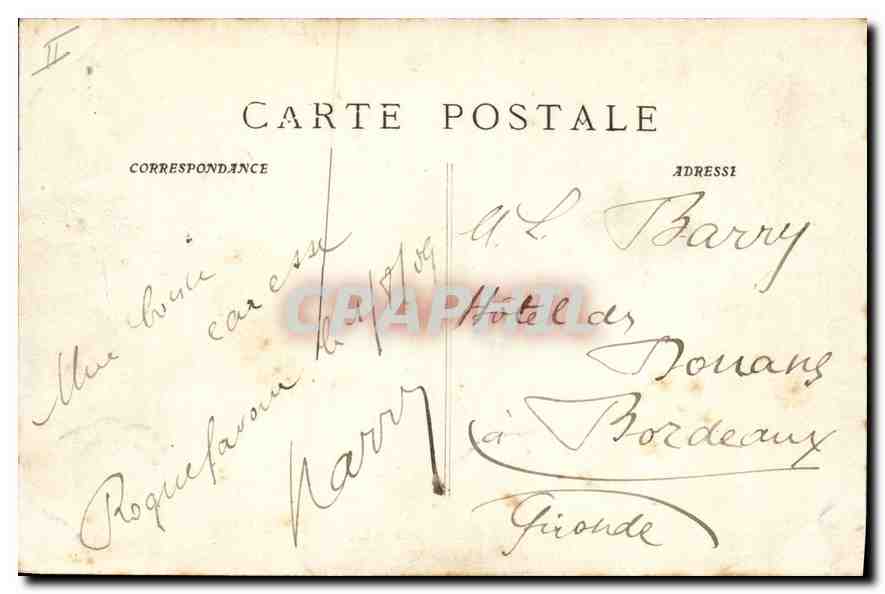 II
CARTE POSTALE
CORRESPONDANCE
ADRESSE
Une bonne
caresse
Roquefavour le 1/8/09
Harry
CPAPHIL
Barry
Hôtel des
Douanes
à Bordeaux
Gironde